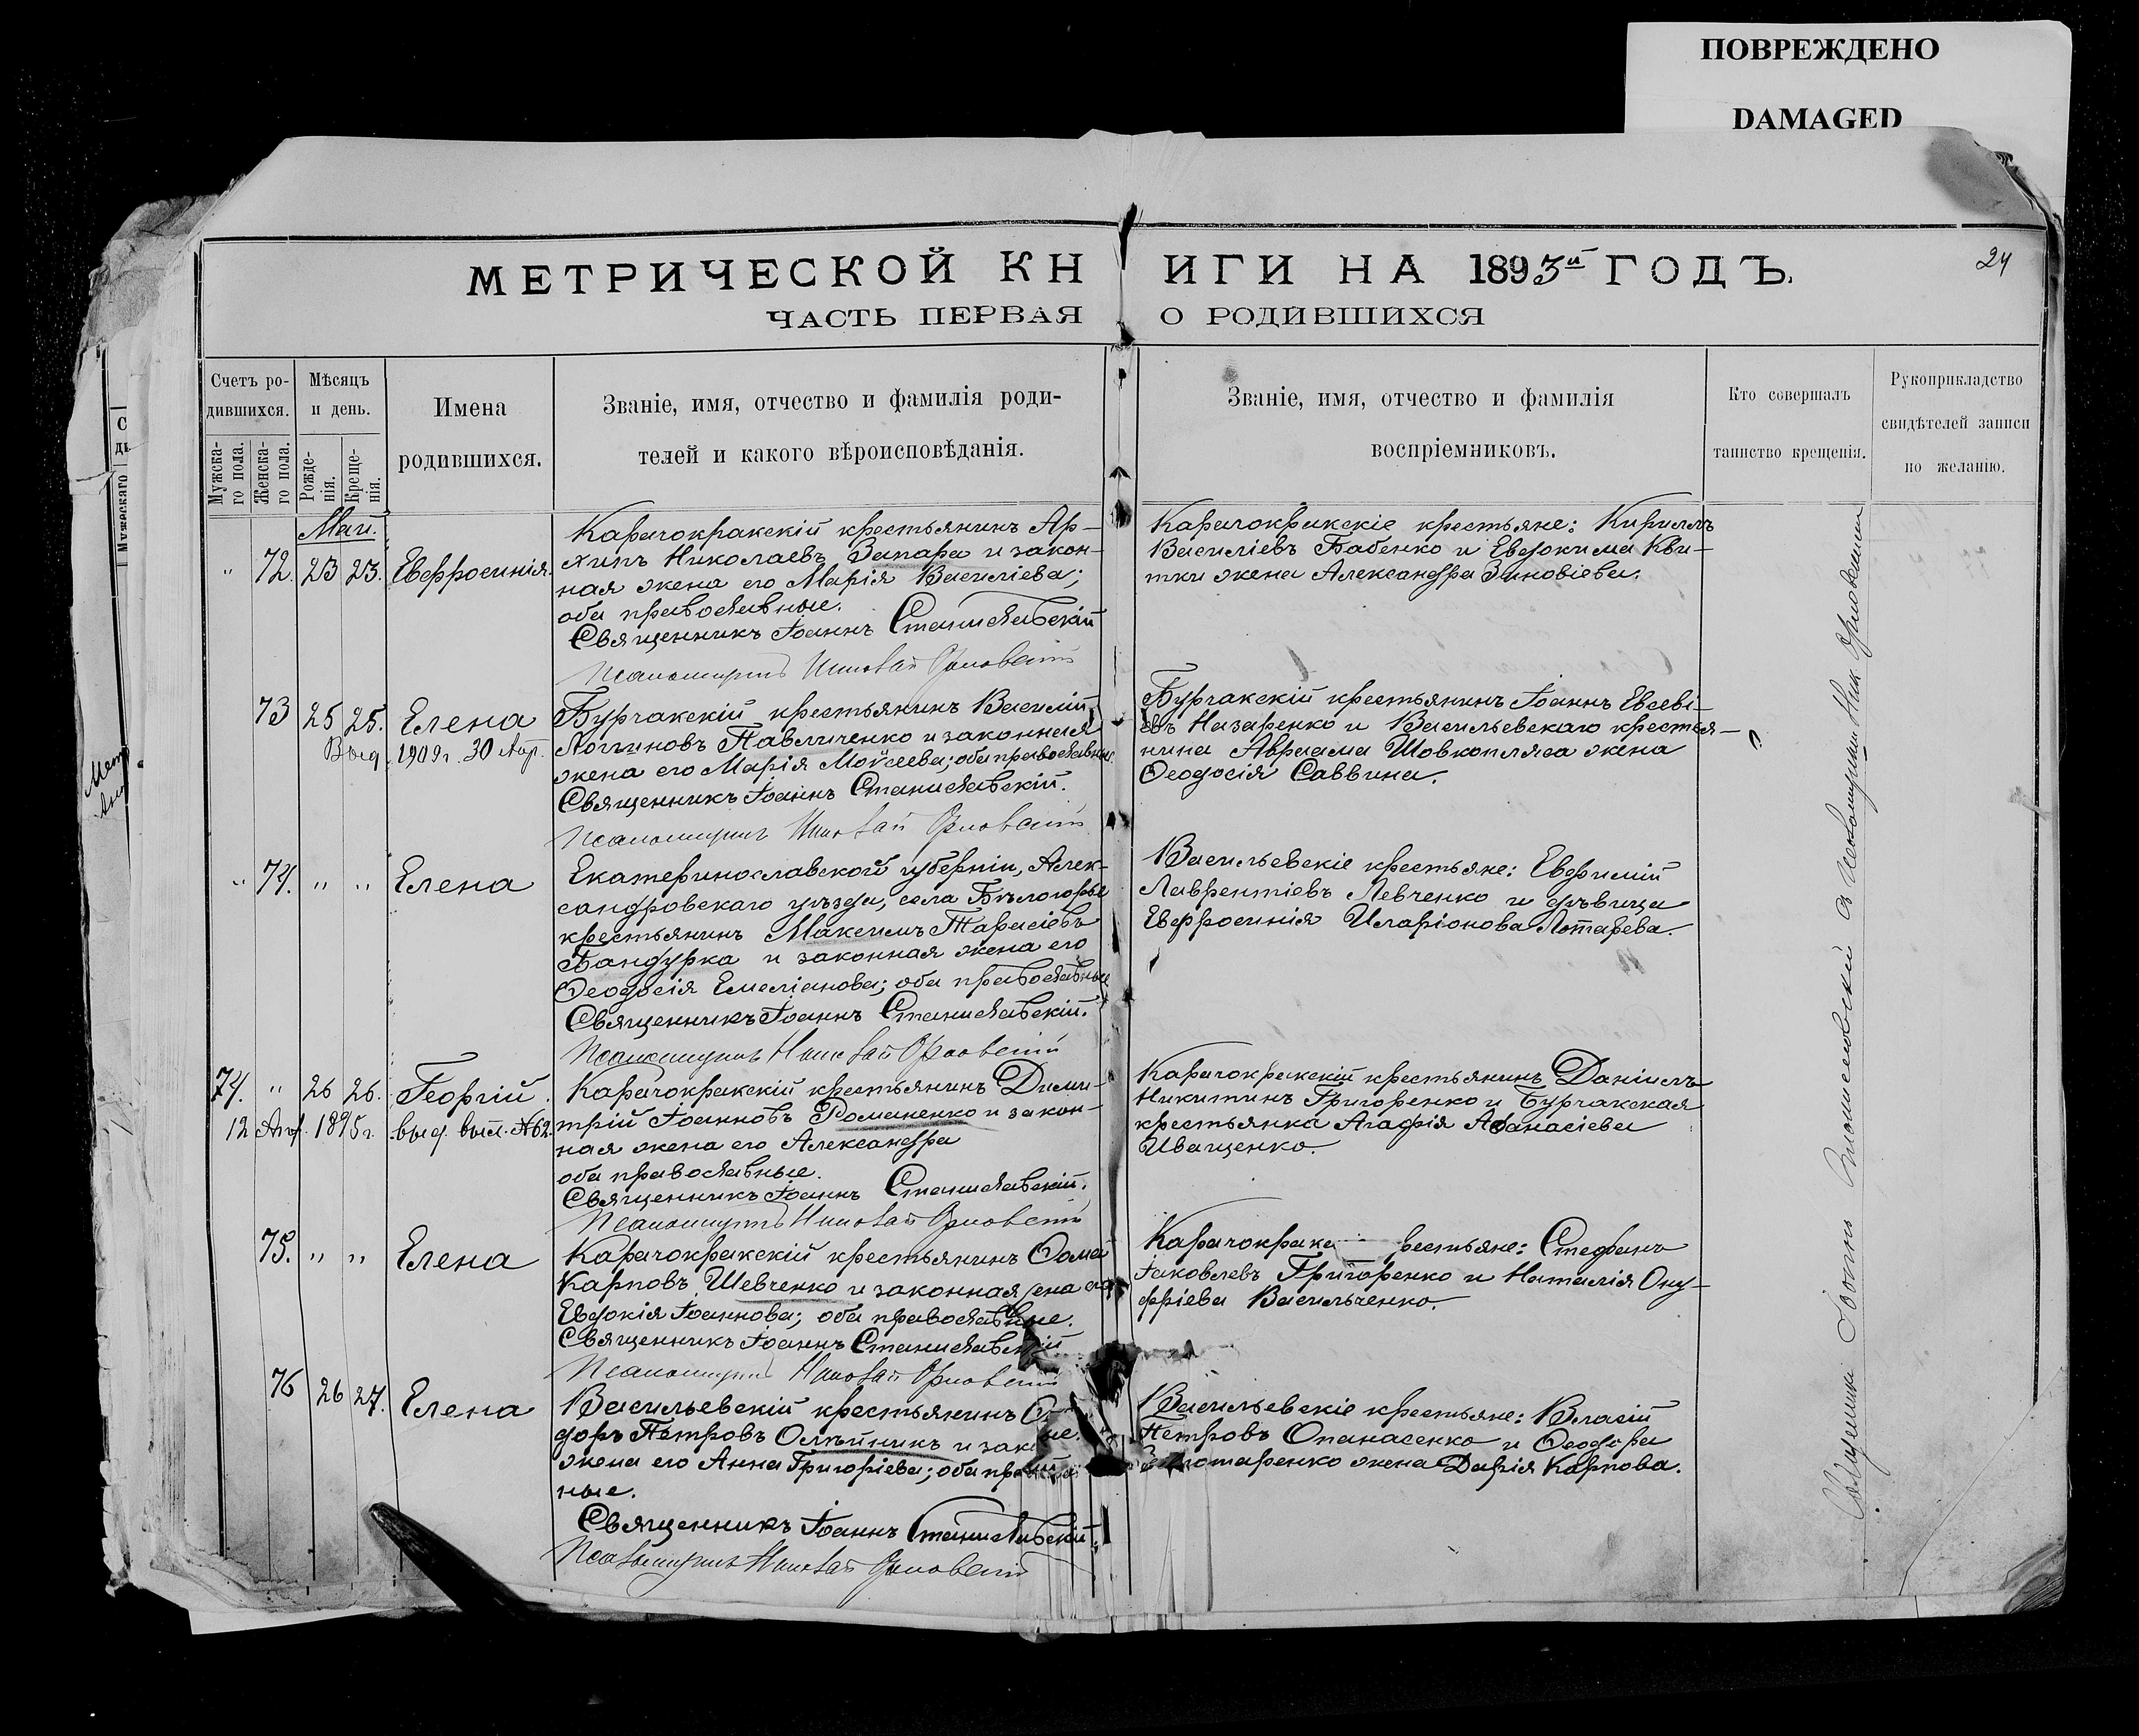 ПОВРЕЖДЕНО
DAMAGED
24
МЕТРИЧЕСКОЙ КНИГИ НА 1893й ГОДЪ.
ЧАСТЬ ПЕРВАЯ О РОДИВШИХСЯ
Счетъ ро-
дившихся.
Мужска-
го пола.
Женска-
го пола.
Мѣсяцъ
и день.
Рожде-
нія.
Креще-
нія.
Имена
родившихся.
Званіе, имя, отчество и фамилія роди-
телей и какого вѣроисповѣданія.
Званіе, имя, отчество и фамилія
воспріемниковъ.
Кто совершалъ
таинство крещенія.
Рукоприкладство
свидѣтелей записи
по желанію.
Май.
" 72. 23 23. Евфросинія.
Карачокракскій крестьянинъ Ар-
хипъ Николаевъ Запара и закон-
ная жена его Марія Василіева;
оба православные.
Священникъ Іоаннъ Станиславскій
Псаломщикъ Николай Орловскій
Карачокракскіе крестьяне: Кириллъ
Василіевъ Бабенко и Евдокима Кви-
тки жена Александра Зиновіева.
73 25 25. Елена
Выд. 1909 г. 30 Апр.
Бурчакскій крестьянинъ Василій
Логиновъ Павличенко и законная
жена его Марія Мойсеева; оба православные.
Священникъ Іоаннъ Станиславскій.
Псаломщикъ Николай Орловскій
Бурчакскій крестьянинъ Іоаннъ Евсеві-
евъ Назаренко и Васильевскаго крестья-
нина Авраама Шовкопляса жена
Ѳеодосія Саввина.
" 74. " " Елена
Екатеринославской губерніи, Алек-
сандровскаго уѣзда, села Бѣлогорье
крестьянинъ Максимъ Тарасіевъ
Бандурка и законная жена его
Ѳеодосія Емеліанова; оба православные
Священникъ Іоаннъ Станиславскій.
Псаломщикъ Николай Орловскій
Васильевскіе крестьяне: Евфимій
Лаврентіевъ Левченко и дѣвица
Евфросинія Иларіонова Лотарева.
74. " 26 26. Георгій.
12 Апр. 1895 г. выд. вып. №62.
Карачокракскій крестьянинъ Дими-
трій Іоанновъ Романенко и закон-
ная жена его Александра
оба православные.
Священникъ Іоаннъ Станиславскій.
Псаломщикъ Николай Орловскій
Карачокракскій крестьянинъ Даніилъ
Никитинъ Григоренко и Бурчакская
крестьянка Агафія Аѳанасіева
Иващенко.
75. " " Елена
Карачокракскій крестьянинъ Ѳома
Карповъ Шевченко и законная ена его
Евдокія Іоаннова; оба православные.
Священникъ Іоаннъ Станиславскій
Псаломщикъ Николай Орловскій
Карачокракс рестьяне: Стефанъ
Іаковлевъ Григоренко и Наталія Ону-
фріева Васильченко.
76 26 27. Елена
Васильевскій крестьянинъ
доръ Петровъ Олѣйникъ и зак
жена его Анна Григоріева; оба прав
ные.
Священникъ Іоаннъ Станиславскій.
Псаломщикъ Николай Орловскій
Васильевскіе крестьяне: Власій
Петровъ Опанасенко и Ѳеодора
жена Дарія Карпова.
Священникъ Іоаннъ Станиславскій съ псаломщикомъ Ник. Орловскимъ